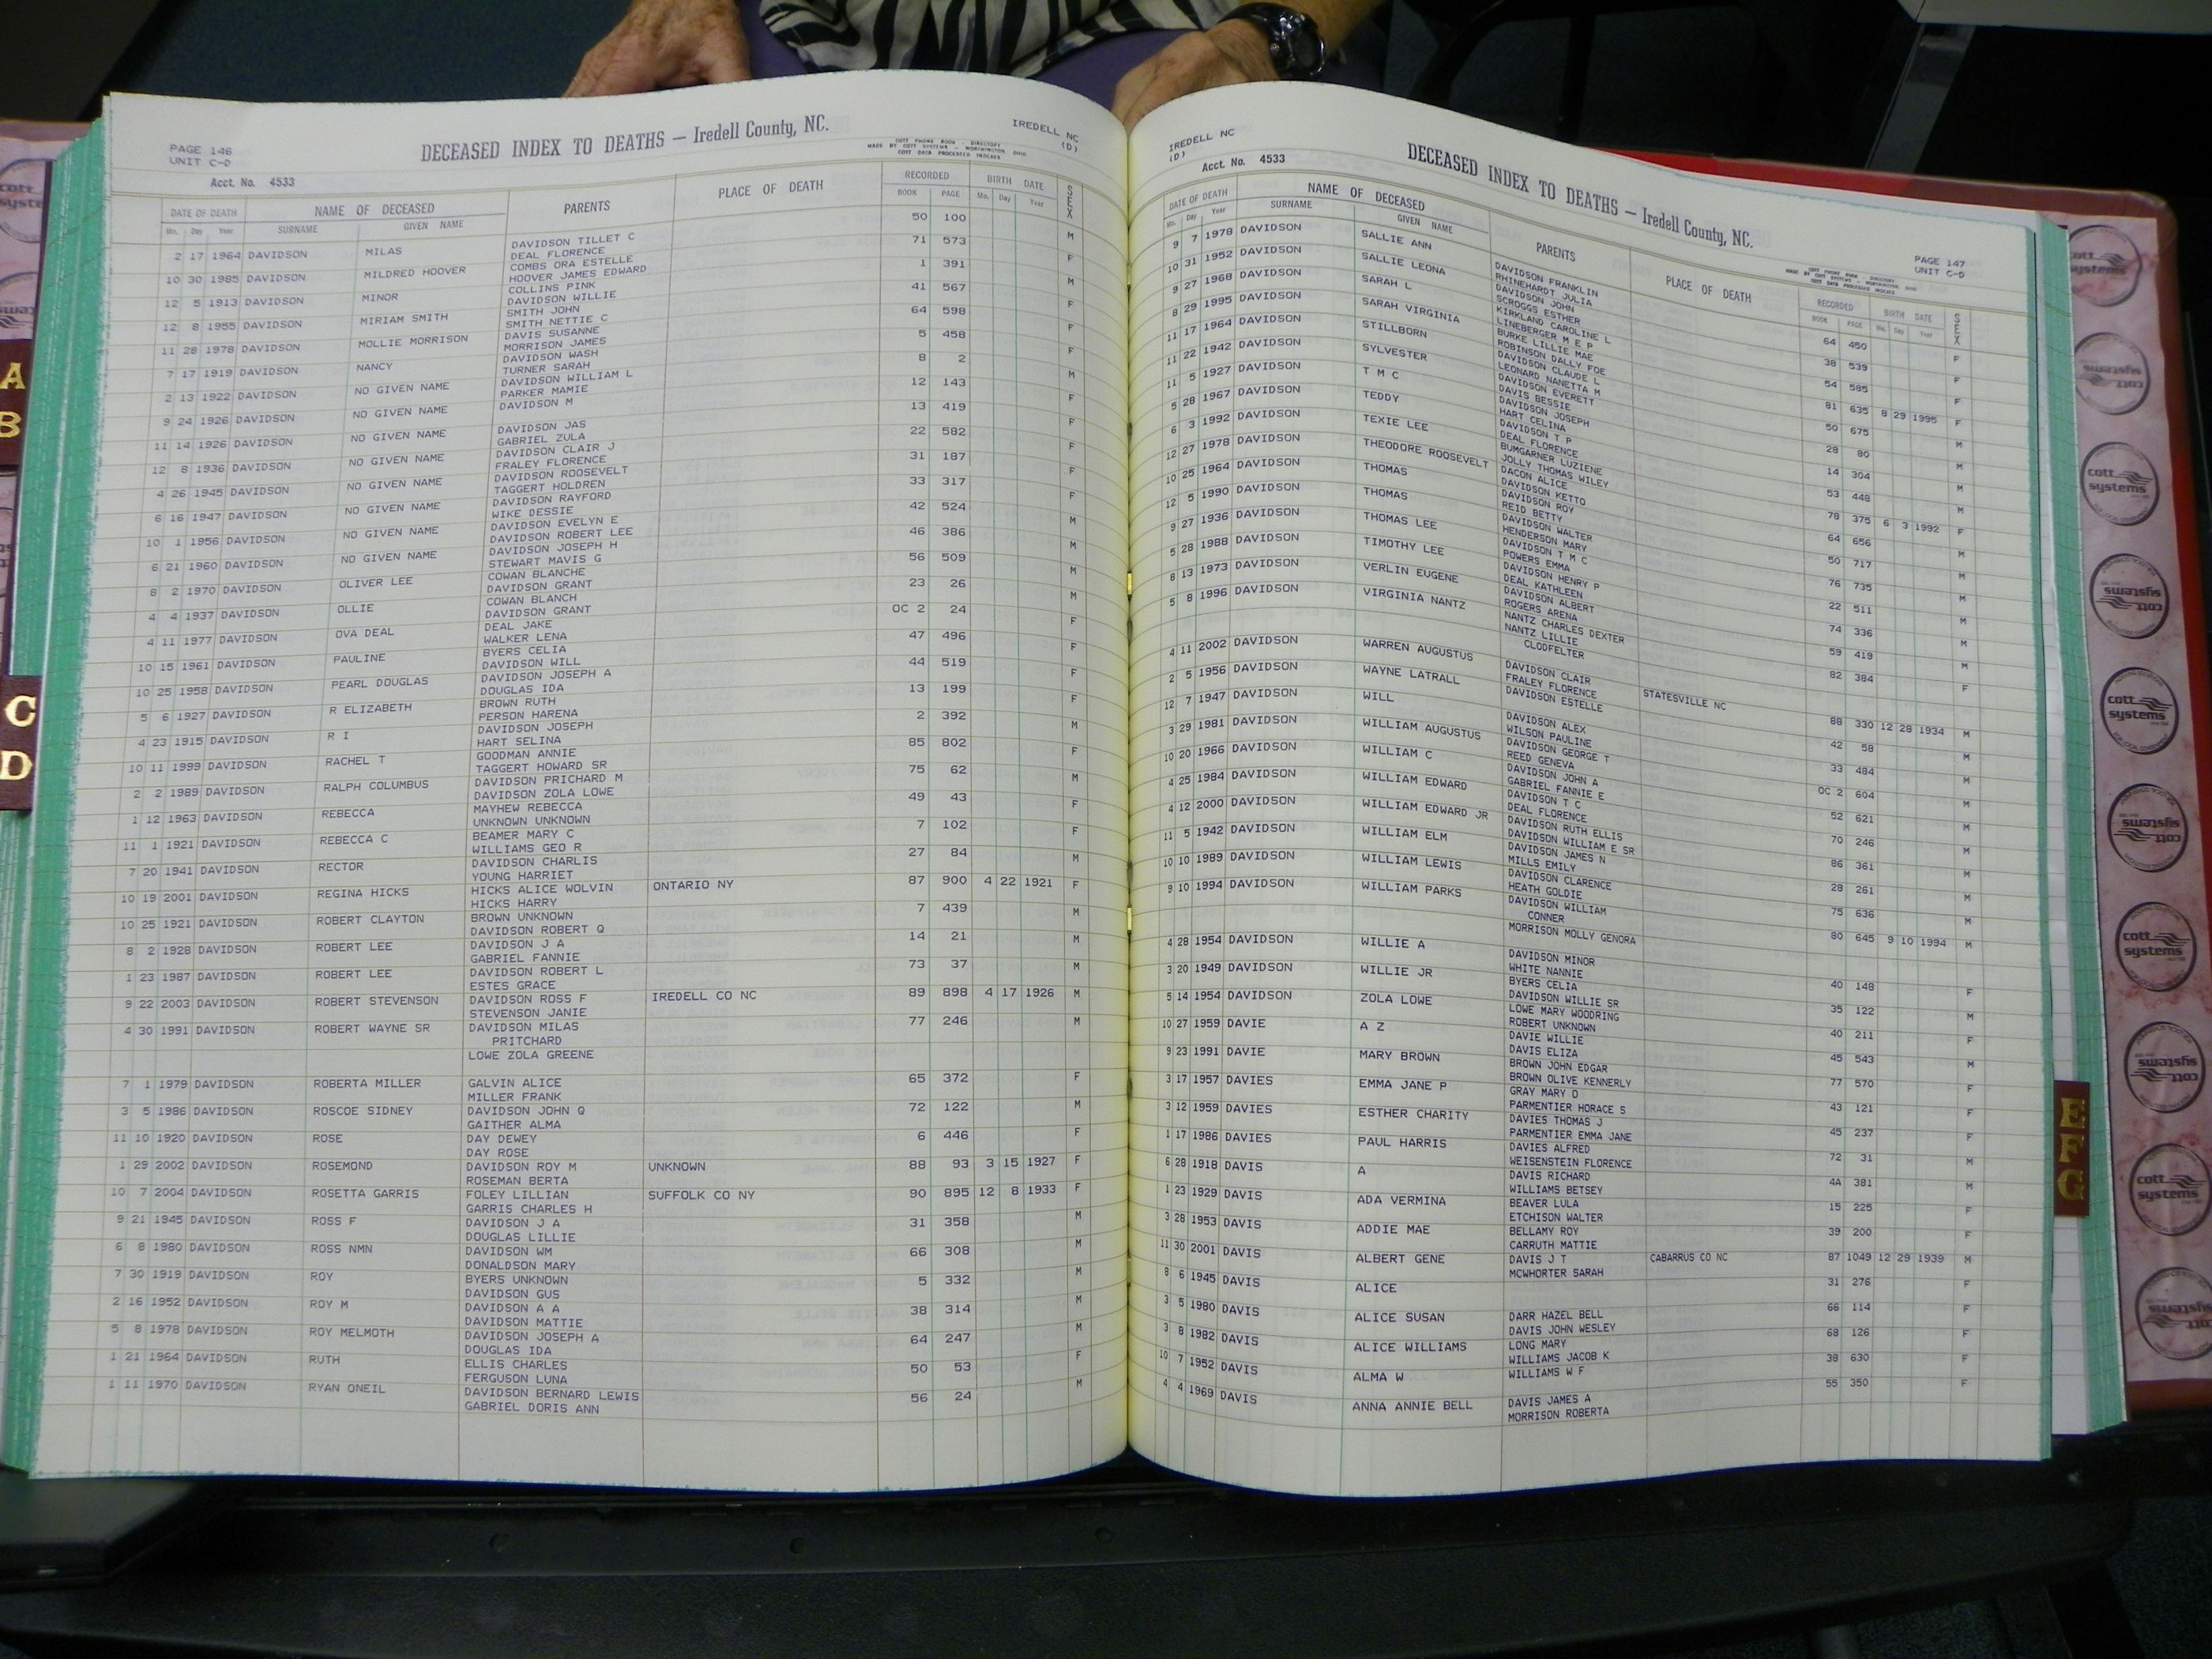 PAGE 146
UNIT C-D
DECEASED INDEX TO DEATHS — Iredell County, NC.
IREDELL NC
(D)
MADE BY COTT SYSTEMS - WORTHINGTON, OHIO
COTT DATA PROCESSED INDEXES
Acct. No. 4533
DATE OF DEATH NAME OF DECEASED PARENTS PLACE OF DEATH RECORDED BIRTH DATE SEX
Mo. Day Year SURNAME GIVEN NAME BOOK PAGE Mo. Day Year
2 17 1964 DAVIDSON MILAS DAVIDSON TILLET C 50 100 M
DEAL FLORENCE
10 30 1985 DAVIDSON MILDRED HOOVER COMBS ORA ESTELLE 71 573 F
HOOVER JAMES EDWARD
12 5 1913 DAVIDSON MINOR COLLINS PINK 1 391 M
DAVIDSON WILLIE
12 8 1955 DAVIDSON MIRIAM SMITH SMITH JOHN 41 567 F
SMITH NETTIE C
11 28 1978 DAVIDSON MOLLIE MORRISON DAVIS SUSANNE 64 598 F
MORRISON JAMES
7 17 1919 DAVIDSON NANCY DAVIDSON WASH 5 458 F
TURNER SARAH
2 13 1922 DAVIDSON NO GIVEN NAME DAVIDSON WILLIAM L 8 2 M
PARKER MAMIE
9 24 1926 DAVIDSON NO GIVEN NAME DAVIDSON M 12 143 F
11 14 1926 DAVIDSON NO GIVEN NAME DAVIDSON JAS 13 419 F
GABRIEL ZULA
12 8 1936 DAVIDSON NO GIVEN NAME DAVIDSON CLAIR J 22 582 F
FRALEY FLORENCE
4 26 1945 DAVIDSON NO GIVEN NAME DAVIDSON ROOSEVELT 31 187 F
TAGGERT HOLDREN
6 16 1947 DAVIDSON NO GIVEN NAME DAVIDSON RAYFORD 33 317 F
WIKE DESSIE
10 1 1956 DAVIDSON NO GIVEN NAME DAVIDSON EVELYN E 42 524 M
DAVIDSON ROBERT LEE
6 21 1960 DAVIDSON NO GIVEN NAME DAVIDSON JOSEPH H 46 386 M
STEWART MAVIS G
8 2 1970 DAVIDSON OLIVER LEE COWAN BLANCHE 56 509 M
DAVIDSON GRANT
4 4 1937 DAVIDSON OLLIE COWAN BLANCH 23 26 M
DAVIDSON GRANT
4 11 1977 DAVIDSON OVA DEAL DEAL JAKE OC 2 24 F
WALKER LENA
10 15 1961 DAVIDSON PAULINE BYERS CELIA 47 496 F
DAVIDSON WILL
10 25 1958 DAVIDSON PEARL DOUGLAS DAVIDSON JOSEPH A 44 519 F
DOUGLAS IDA
5 6 1927 DAVIDSON R ELIZABETH BROWN RUTH 13 199 F
PERSON HARENA
4 23 1915 DAVIDSON R I DAVIDSON JOSEPH 2 392 M
HART SELINA
10 11 1999 DAVIDSON RACHEL T GOODMAN ANNIE 85 802 F
TAGGERT HOWARD SR
2 2 1989 DAVIDSON RALPH COLUMBUS DAVIDSON PRICHARD M 75 62 M
DAVIDSON ZOLA LOWE
1 12 1963 DAVIDSON REBECCA MAYHEW REBECCA 49 43 F
UNKNOWN UNKNOWN
11 1 1921 DAVIDSON REBECCA C BEAMER MARY C 7 102 F
WILLIAMS GEO R
7 20 1941 DAVIDSON RECTOR DAVIDSON CHARLIS 27 84 M
YOUNG HARRIET
10 19 2001 DAVIDSON REGINA HICKS HICKS ALICE WOLVIN ONTARIO NY 87 900 4 22 1921 F
HICKS HARRY
10 25 1921 DAVIDSON ROBERT CLAYTON BROWN UNKNOWN 7 439 M
DAVIDSON ROBERT Q
8 2 1928 DAVIDSON ROBERT LEE DAVIDSON J A 14 21 M
GABRIEL FANNIE
1 23 1987 DAVIDSON ROBERT LEE DAVIDSON ROBERT L 73 37 M
ESTES GRACE
9 22 2003 DAVIDSON ROBERT STEVENSON DAVIDSON ROSS F IREDELL CO NC 89 898 4 17 1926 M
STEVENSON JANIE
4 30 1991 DAVIDSON ROBERT WAYNE SR DAVIDSON MILAS 77 246 M
PRITCHARD
LOWE ZOLA GREENE
7 1 1979 DAVIDSON ROBERTA MILLER GALVIN ALICE 65 372 F
MILLER FRANK
3 5 1986 DAVIDSON ROSCOE SIDNEY DAVIDSON JOHN Q 72 122 M
GAITHER ALMA
11 10 1920 DAVIDSON ROSE DAY DEWEY 6 446 F
DAY ROSE
1 29 2002 DAVIDSON ROSEMOND DAVIDSON ROY M UNKNOWN 88 93 3 15 1927 F
ROSEMAN BERTA
10 7 2004 DAVIDSON ROSETTA GARRIS FOLEY LILLIAN SUFFOLK CO NY 90 895 12 8 1933 F
GARRIS CHARLES H
9 21 1945 DAVIDSON ROSS F DAVIDSON J A 31 358 M
DOUGLAS LILLIE
6 8 1980 DAVIDSON ROSS NMN DAVIDSON WM 66 308 M
DONALDSON MARY
7 30 1919 DAVIDSON ROY BYERS UNKNOWN 5 332 M
DAVIDSON GUS
2 16 1952 DAVIDSON ROY M DAVIDSON A A 38 314 M
DAVIDSON MATTIE
5 8 1978 DAVIDSON ROY MELMOTH DAVIDSON JOSEPH A 64 247 M
DOUGLAS IDA
1 21 1964 DAVIDSON RUTH ELLIS CHARLES 50 53 F
FERGUSON LUNA
1 11 1970 DAVIDSON RYAN ONEIL DAVIDSON BERNARD LEWIS 56 24 M
GABRIEL DORIS ANN
IREDELL NC
(D)
DECEASED INDEX TO DEATHS — Iredell County, NC.
PAGE 147
UNIT C-D
Acct. No. 4533
DATE OF DEATH NAME OF DECEASED PARENTS PLACE OF DEATH RECORDED BIRTH DATE SEX
Mo. Day Year SURNAME GIVEN NAME BOOK PAGE Mo. Day Year
9 7 1978 DAVIDSON SALLIE ANN DAVIDSON FRANKLIN 64 450 F
RHINEHARDT JULIA
10 31 1952 DAVIDSON SALLIE LEONA DAVIDSON JOHN 38 539 F
SCROGGS ESTHER
9 27 1968 DAVIDSON SARAH L KIRKLAND CAROLINE L 54 585 F
LINEBERGER M E P
8 29 1995 DAVIDSON SARAH VIRGINIA BURKE LILLIE MAE 81 635 8 29 1995 F
ROBINSON DALLY FOE
11 17 1964 DAVIDSON STILLBORN DAVIDSON CLAUDE L 50 675 M
LEONARD NANETTA M
11 22 1942 DAVIDSON SYLVESTER DAVIDSON EVERETT 28 80 M
DAVIS BESSIE
11 5 1927 DAVIDSON T M C DAVIDSON JOSEPH 14 304 M
HART CELINA
5 28 1967 DAVIDSON TEDDY DAVIDSON T P 53 448 M
DEAL FLORENCE
6 3 1992 DAVIDSON TEXIE LEE BUMGARNER LUZIENE 78 375 6 3 1992 F
JOLLY THOMAS WILEY
12 27 1978 DAVIDSON THEODORE ROOSEVELT DACON ALICE 64 656 M
DAVIDSON KETTO
10 25 1964 DAVIDSON THOMAS DAVIDSON ROY 50 717 M
REID BETTY
12 5 1990 DAVIDSON THOMAS DAVIDSON WALTER 76 735 M
HENDERSON MARY
9 27 1936 DAVIDSON THOMAS LEE DAVIDSON T M C 22 511 M
POWERS EMMA
5 28 1988 DAVIDSON TIMOTHY LEE DAVIDSON HENRY P 74 336 M
DEAL KATHLEEN
8 13 1973 DAVIDSON VERLIN EUGENE DAVIDSON ALBERT 59 419 M
ROGERS ARENA
5 8 1996 DAVIDSON VIRGINIA NANTZ NANTZ CHARLES DEXTER 82 384 F
NANTZ LILLIE
CLODFELTER
4 11 2002 DAVIDSON WARREN AUGUSTUS DAVIDSON CLAIR STATESVILLE NC 88 330 12 28 1934 M
FRALEY FLORENCE
2 5 1956 DAVIDSON WAYNE LATRALL DAVIDSON ESTELLE 42 58 M
12 7 1947 DAVIDSON WILL DAVIDSON ALEX 33 484 M
WILSON PAULINE
3 29 1981 DAVIDSON WILLIAM AUGUSTUS DAVIDSON GEORGE T OC 2 604 M
REED GENEVA
10 20 1966 DAVIDSON WILLIAM C DAVIDSON JOHN A 52 621 M
GABRIEL FANNIE E
4 25 1984 DAVIDSON WILLIAM EDWARD DAVIDSON T C 70 246 M
DEAL FLORENCE
4 12 2000 DAVIDSON WILLIAM EDWARD JR DAVIDSON RUTH ELLIS 86 361 M
DAVIDSON WILLIAM E SR
11 5 1942 DAVIDSON WILLIAM ELM DAVIDSON JAMES N 28 261 M
MILLS EMILY
10 10 1989 DAVIDSON WILLIAM LEWIS DAVIDSON CLARENCE 75 636 M
HEATH GOLDIE
9 10 1994 DAVIDSON WILLIAM PARKS DAVIDSON WILLIAM 80 645 9 10 1994 M
CONNER
MORRISON MOLLY GENORA
4 28 1954 DAVIDSON WILLIE A DAVIDSON MINOR 40 148 F
WHITE NANNIE
3 20 1949 DAVIDSON WILLIE JR BYERS CELIA 35 122 M
DAVIDSON WILLIE SR
5 14 1954 DAVIDSON ZOLA LOWE LOWE MARY WOODRING 40 211 F
ROBERT UNKNOWN
10 27 1959 DAVIE A Z DAVIE WILLIE 45 543 M
DAVIS ELIZA
9 23 1991 DAVIE MARY BROWN BROWN JOHN EDGAR 77 570 F
BROWN OLIVE KENNERLY
3 17 1957 DAVIES EMMA JANE P GRAY MARY D 43 121 F
PARMENTIER HORACE S
3 12 1959 DAVIES ESTHER CHARITY DAVIES THOMAS J 45 237 F
PARMENTIER EMMA JANE
1 17 1986 DAVIES PAUL HARRIS DAVIES ALFRED 72 31 M
WEISENSTEIN FLORENCE
6 28 1918 DAVIS A DAVIS RICHARD 4A 381 M
WILLIAMS BETSEY
1 23 1929 DAVIS ADA VERMINA BEAVER LULA 15 225 F
ETCHISON WALTER
3 28 1953 DAVIS ADDIE MAE BELLAMY ROY 39 200 F
CARRUTH MATTIE
11 30 2001 DAVIS ALBERT GENE DAVIS J T CABARRUS CO NC 87 1049 12 29 1939 M
MCWHORTER SARAH
8 6 1945 DAVIS ALICE 31 276 F
3 5 1980 DAVIS ALICE SUSAN DARR HAZEL BELL 66 114 F
DAVIS JOHN WESLEY
3 8 1982 DAVIS ALICE WILLIAMS LONG MARY 68 126 F
WILLIAMS JACOB K
10 7 1952 DAVIS ALMA W WILLIAMS W F 38 630 F
4 4 1969 DAVIS ANNA ANNIE BELL DAVIS JAMES A 55 350 F
MORRISON ROBERTA
A
B
C
D
E
F
G
cott
systems